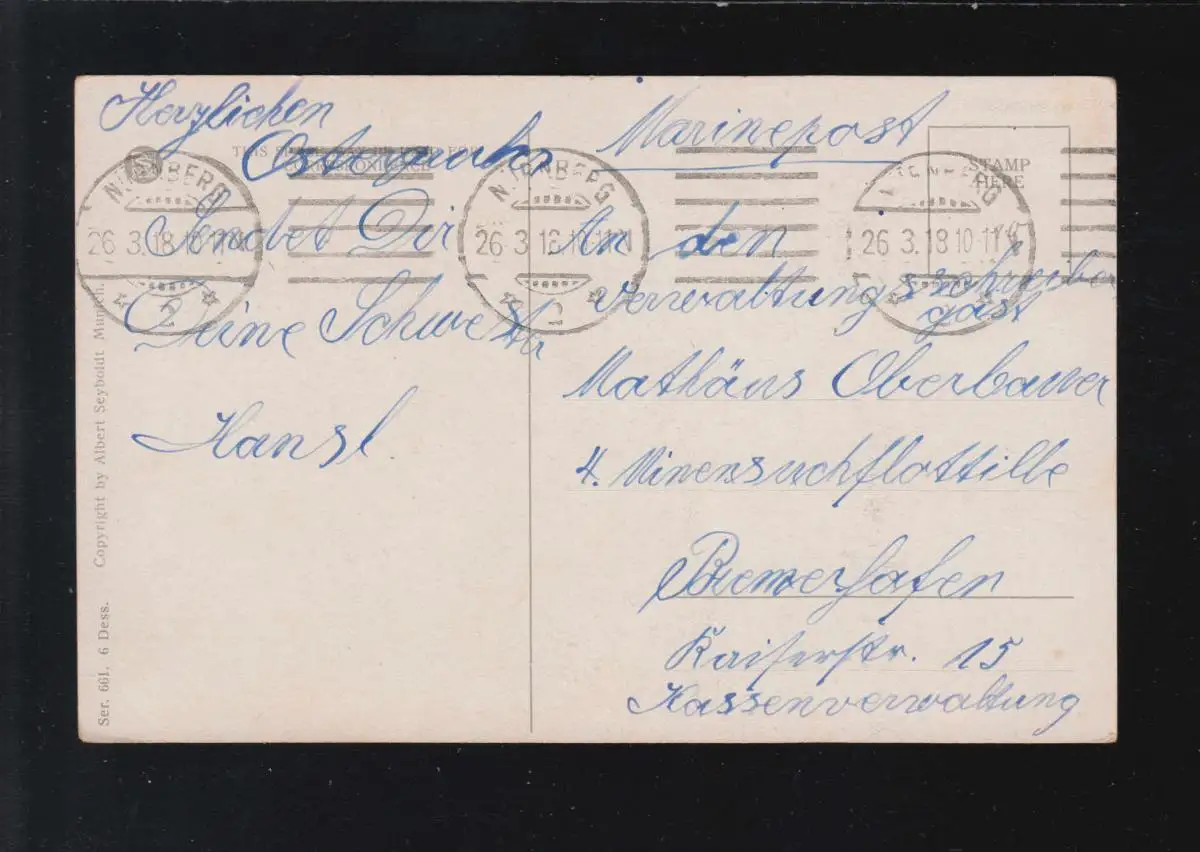 Herzlichen
Ostergruß
sendet Dir
Deine Schwester
Hansl
Marinepost
An den
Verwaltungsschreiber
gast
Mathäus Oberbauer
4. Minensuchflottille
Bremerhafen
Kaiserstr. 15
Kassenverwaltung
STAMP
HERE
26 3.18 10-11 V
26 3 18 10-11 V
26 3.18 10-11 V
2
Ser. 661. 6 Dess. Copyright by Albert Seyboldt Munich.